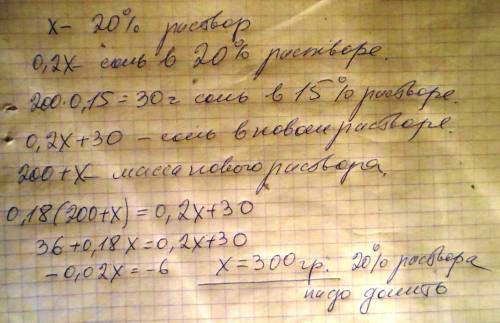 х - 20% раствор
0,2х - соль в 20% растворе.
200·0,15=30г соль в 15% растворе.
0,2х+30 - соль в новом растворе.
200+х - масса нового раствора.
0,18(200+х)=0,2х+30
36+0,18х=0,2х+30
-0,02х=-6 х=300гр. 20% раствора
надо долить